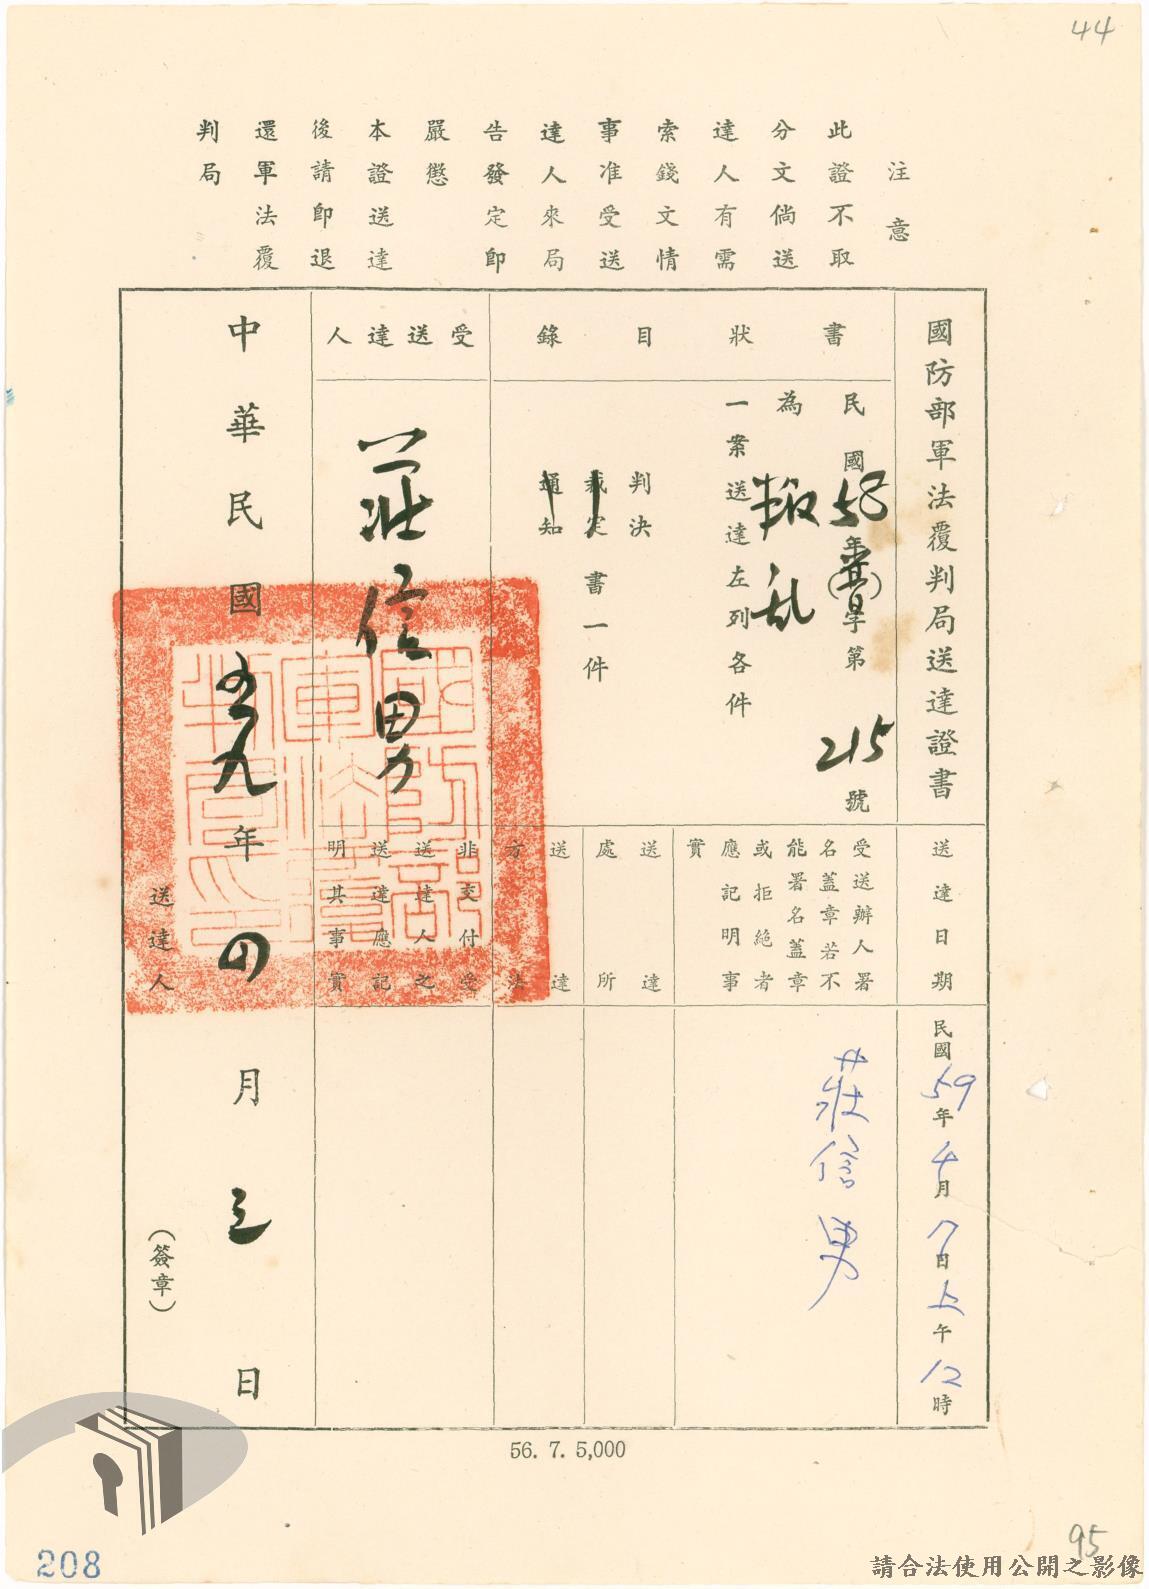 44
注意
此證不取
分文倘送
達人有需
索錢文情
事准受送
達人來局
告發定即
嚴懲
本證送達
後請即退
還軍法覆
判局
國防部軍法覆判局送達證書
書狀目錄
民國58年
字第215號
為叛乱
一案送達左列各件
判決
裁定
通知
書一件
受送達人
莊信男
送達日期
民國59年4月7日上午12時
受送辦人署
名蓋章若不
能署名蓋章
或拒絕者
應記明事
實
莊信男
送達
處所
送達
方法
非交付受
送達人之
送達應記
明其事實
中華民國五九年四月三日
送達人
（簽章）
56. 7. 5,000
208
95
請合法使用公開之影像